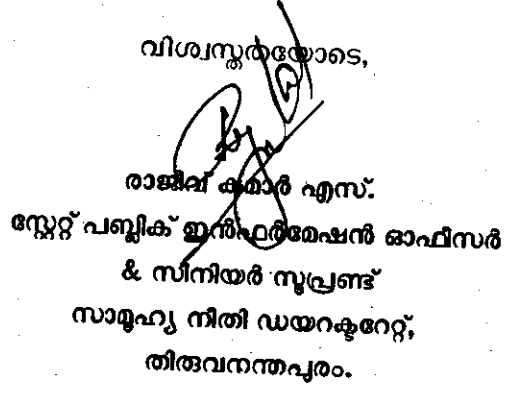 വിശ്വസ്തതയോടെ,
രാജീവ് കുമാർ എസ്.
സ്റ്റേറ്റ് പബ്ലിക് ഇൻഫർമേഷൻ ഓഫീസർ
& സീനിയർ സൂപ്രണ്ട്
സാമൂഹ്യ നീതി ഡയറക്ടറേറ്റ്,
തിരുവനന്തപുരം.